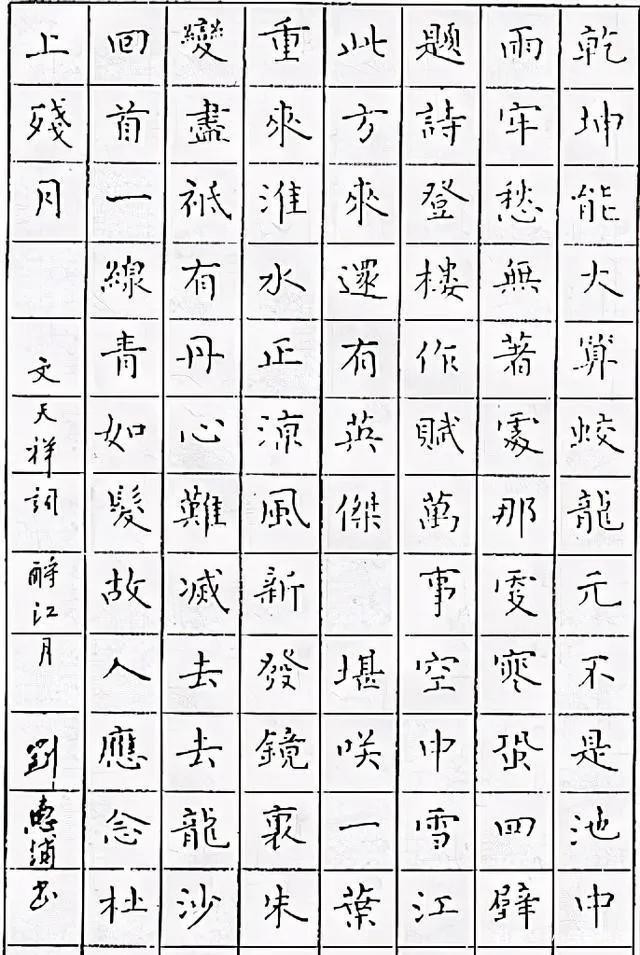 乾坤能大算蛟龍元不是池中
雨牢愁無著處那更寒蛩四壁
題詩登樓作賦萬事空中雪江
此方來還有英傑 堪咲一葉
重來淮水正涼風新發鏡裏朱
變盡祗有丹心難滅去去龍沙
回首一線青如髮故人應念杜
上殘月 文天祥詞 酹江月 劉惠浦書